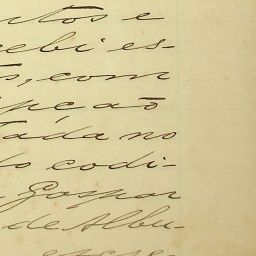 ntos e
cebi es-
s, com
pção
tada no
do codi-
Gaspar
de Albu-